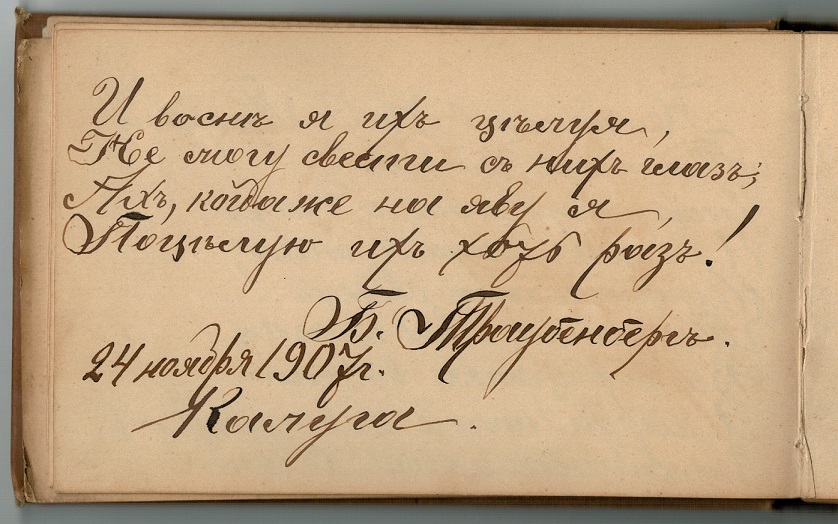 И воснѣ я ихъ цѣлуя,
Не могу свести съ нихъ глазъ;
Ахъ, когда же на яву я
Поцѣлую ихъ хоть разъ!
Б. Траубенбергъ.
24 ноября 1907г.
Калуга.